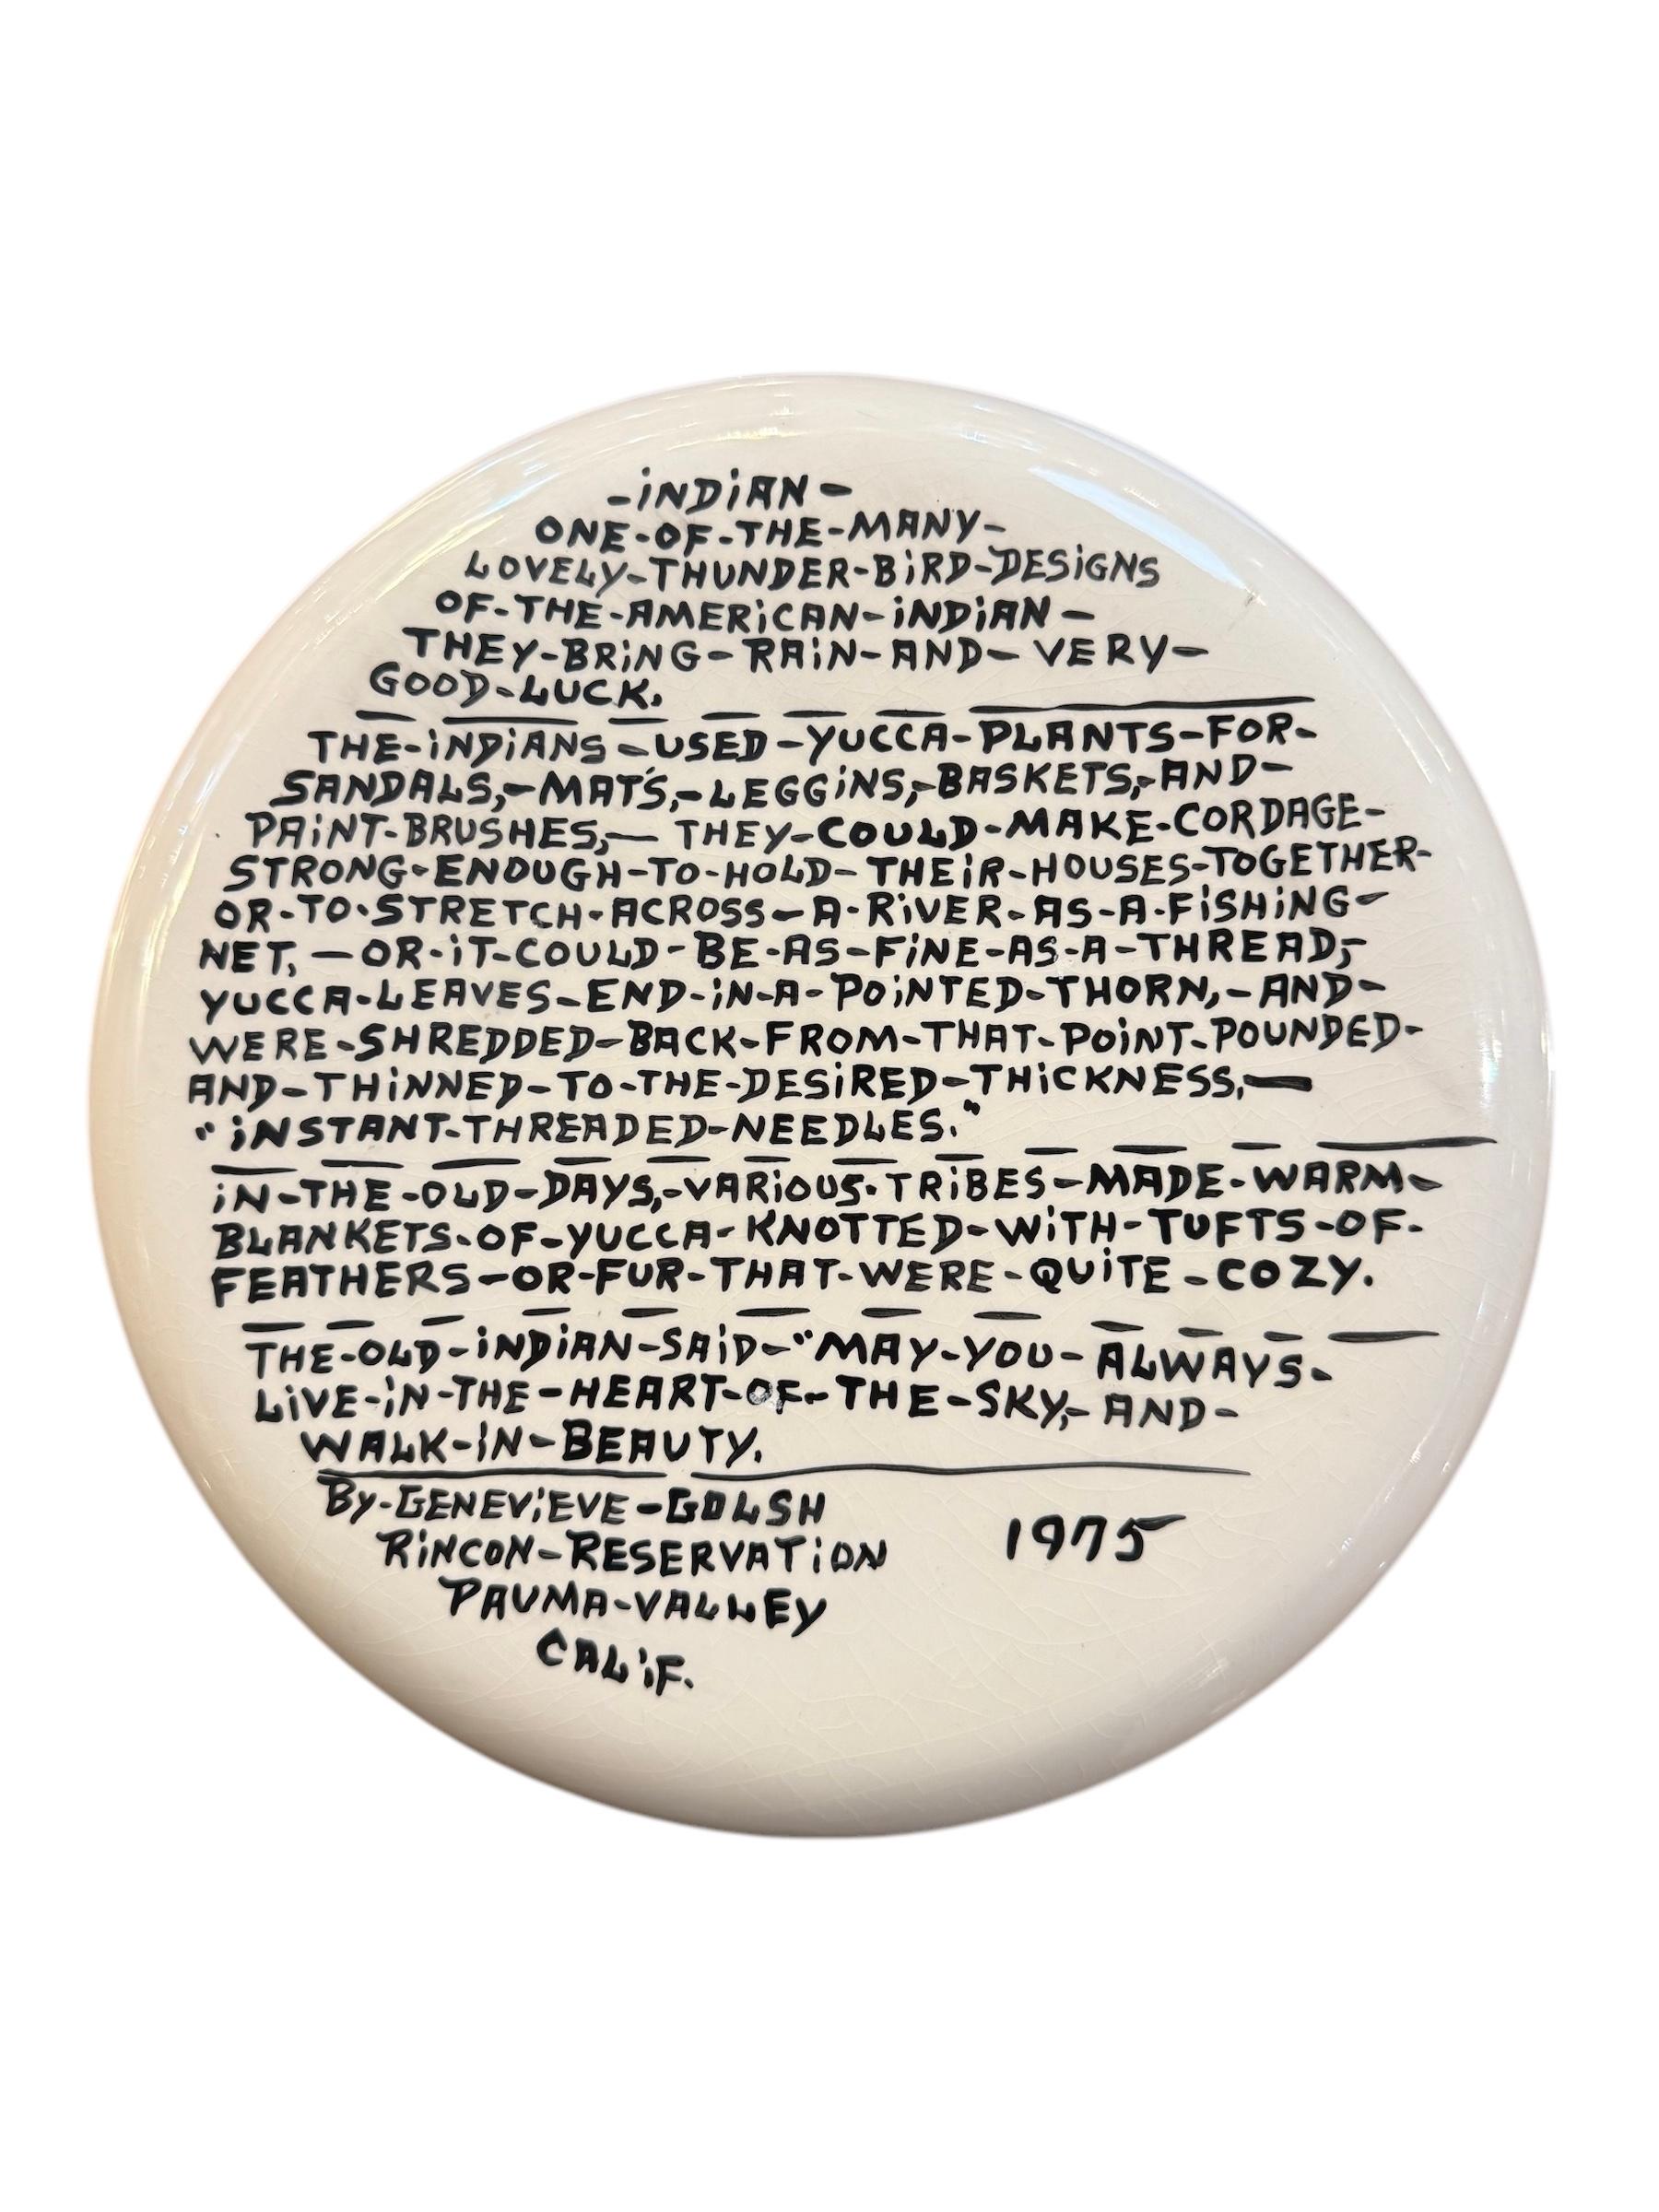 -iNDiAN-
ONE-OF-THE-MANY-
LOVELY-THUNDER-BiRD-DESiGNS
OF-THE-AMERiCAN-iNDiAN-
THEY-BRiNG-RAiN-AND-VERY-
GOOD-LUCK.
THE-iNDiANS-USED-YUCCA-PLANTS-FOR-
SANDALS,-MAT'S,-LEGGiNS,-BASKETS,-AND-
PAiNT-BRUSHES,-THEY-COULD-MAKE-CORDAGE-
STRONG-ENOUGH-TO-HOLD-THEiR-HOUSES-TOGETHER-
OR-TO-STRETCH-ACROSS-A-RiVER-AS-A-FiSHiNG-
NET,-OR-iT-COULD-BE-AS-FiNE-AS-A-THREAD,-
YUCCA-LEAVES-END-iN-A-POiNTED-THORN,-AND-
WERE-SHREDDED-BACK-FROM-THAT-POiNT-POUNDED-
AND-THiNNED-TO-THE-DESiRED-THiCKNESS,-
"iNSTANT-THREADED-NEEDLES."
iN-THE-OLD-DAYS,-VARiOUS-TRiBES-MADE-WARM-
BLANKETS-OF-YUCCA-KNOTTED-WiTH-TUFTS-OF-
FEATHERS-OR-FUR-THAT-WERE-QUiTE-COZY.
THE-OLD-iNDiAN-SAiD-"MAY-YOU-ALWAYS-
LiVE-iN-THE-HEART-OF-THE-SKY,-AND-
WALK-iN-BEAUTY.
By-GENEViEVE-GOLSH
RiNCON-RESERVATiON
1975
PAUMA-VALLEY
CALiF.